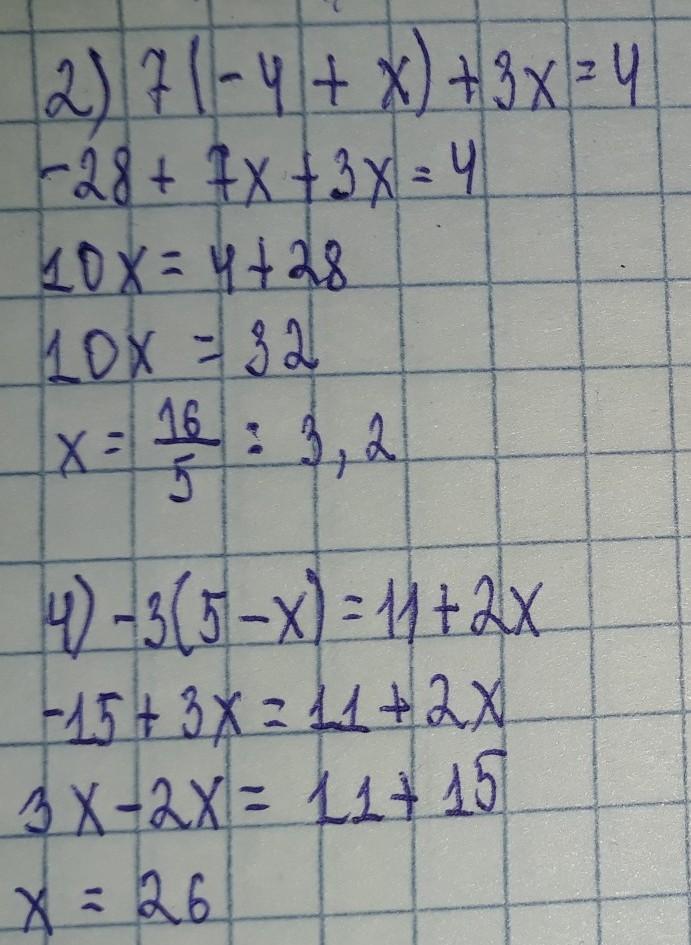 2) 7(-4 + x) + 3x = 4
-28 + 7x + 3x = 4
10x = 4 + 28
10x = 32
x = 16/5 = 3,2
4) -3(5 - x) = 11 + 2x
-15 + 3x = 11 + 2x
3x - 2x = 11 + 15
x = 26